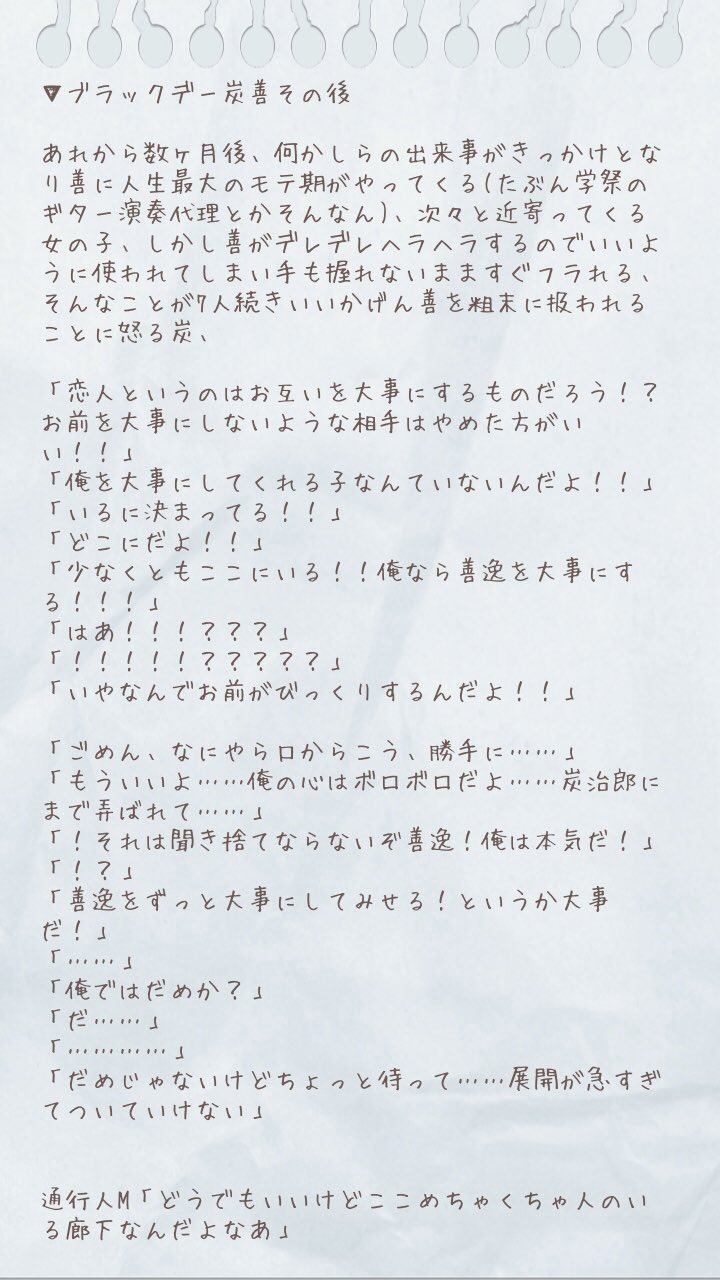 ▼ブラックデー炭善その後
あれから数ヶ月後、何かしらの出来事がきっかけとな
り善に人生最大のモテ期がやってくる(たぶん学祭の
ギター演奏代理とかそんなん)、次々と近寄ってくる
女の子、しかし善がデレデレヘラヘラするのでいいよ
うに使われてしまい手も握れないまますぐフラれる、
そんなことが7人続きいいかげん善を粗末に扱われる
ことに怒る炭、
「恋人というのはお互いを大事にするものだろう！？
お前を大事にしないような相手はやめた方がい
い！！」
「俺を大事にしてくれる子なんていないんだよ！！」
「いるに決まってる！！」
「どこにだよ！！」
「少なくともここにいる！！俺なら善逸を大事にす
る！！！」
「はあ！！！？？？」
「！！！！！？？？？？」
「いやなんでお前がびっくりするんだよ！！」
「ごめん、なにやら口からこう、勝手に……」
「もういいよ……俺の心はボロボロだよ……炭治郎に
まで弄ばれて……」
「！それは聞き捨てならないぞ善逸！俺は本気だ！」
「！？」
「善逸をずっと大事にしてみせる！というか大事
だ！」
「……」
「俺ではだめか？」
「だ……」
「…………」
「だめじゃないけどちょっと待って……展開が急すぎ
てついていけない」
通行人M「どうでもいいけどここめちゃくちゃ人のい
る廊下なんだよなあ」